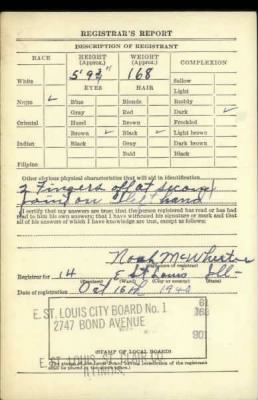 REGISTRAR'S REPORT
DESCRIPTION OF REGISTRANT
RACE HEIGHT (Approx.) WEIGHT (Approx.) COMPLEXION
5' 9½" 168
White Sallow
EYES HAIR Light
Negro ✓ Blue Blonde Ruddy
Gray Red Dark ✓
Oriental Hazel Brown Freckled
Brown ✓ Black ✓ Light brown
Indian Black Gray Dark brown
Bald Black
Filipino
Other obvious physical characteristics that will aid in identification
2 Fingers off at second
joint on left hand
I certify that my answers are true; that the person registered has read or has had
read to him his own answers; that I have witnessed his signature or mark and that
all of his answers of which I have knowledge are true, except as follows:
Noah McWherter
(Signature of registrar)
Registrar for 14 E St Louis Ill
(Precinct) (Ward) (City or county) (State)
Date of registration Oct 16th 1940
E. ST. LOUIS CITY BOARD No. 1
2747 BOND AVENUE
E. ST. LOUIS, ST. CLAIR CO.
ILLINOIS
(STAMP OF LOCAL BOARD)
(The stamp of the Local Board having jurisdiction of the registrant
shall be placed in the above space.)